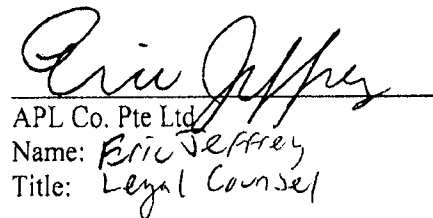 Eric Jeffrey
APL Co. Pte Ltd
Name: Eric Jeffrey
Title: Legal Counsel